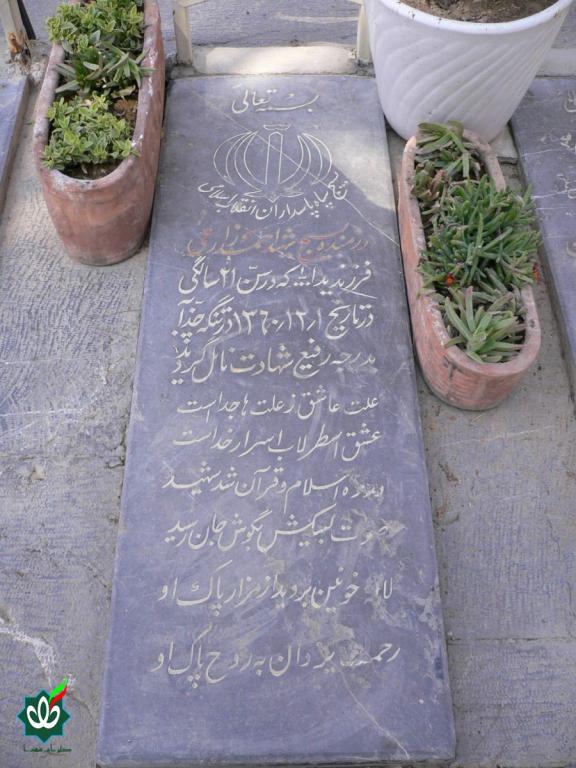 بسمه تعالی
بسیج سپاه پاسداران انقلاب اسلامی
رزمنده بسیج شهید
فرزند یدالله که در سن ۲۱ سالگی
در تاریخ ۱۳۶۰،۱۲،۱ در تنگه چذآبه
بدرجه رفیع شهادت نائل گردید
علت عاشق ز علت ها جداست
عشق اسطرلاب اسرار خداست
در ره اسلام و قرآن شد شهید
صوت لبیکش بگوش جان رسید
لاله خونین بروید از مزار پاک او
رحمت یزدان به روح پاک او